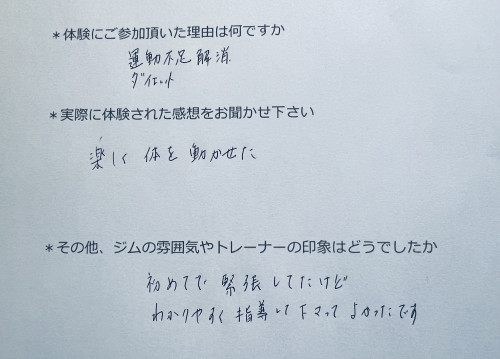 *体験にご参加頂いた理由は何ですか
運動不足解消
ダイエット
*実際に体験された感想をお聞かせ下さい
楽しく 体を 動かせた
*その他、ジムの雰囲気やトレーナーの印象はどうでしたか
初めてで 緊張してたけど
わかりやすく 指導して下さって よかったです